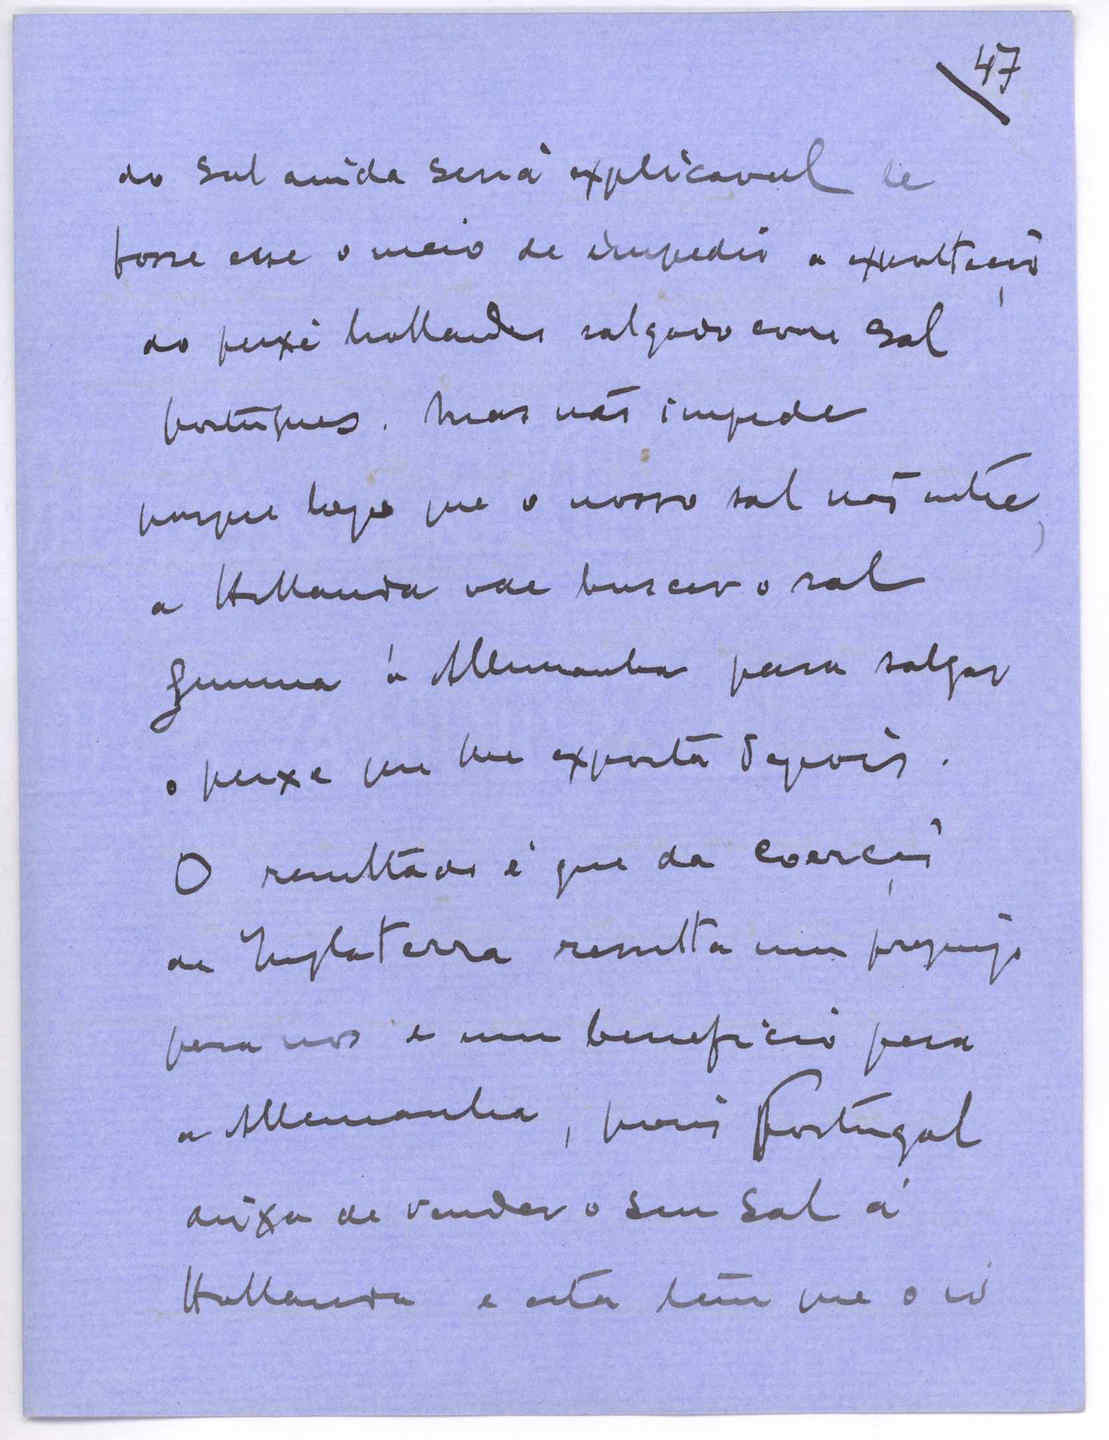 47
do sal ainda seria explicavel se
fosse esse o meio de impedir a exportação
do peixe hollandês salgado com sal
português. Mas não impede
porque logo que o nosso sal não entre,
a Hollanda vae buscar o sal
gemma á Allemanha para salgar
o peixe que lhe exporta depois.
O resultado é que da coerção
da Inglaterra resulta um prejuizo
para nos e um beneficio para
a Allemanha, pois Portugal
deixa de vender o seu sal á
Hollanda e esta tem que o ir